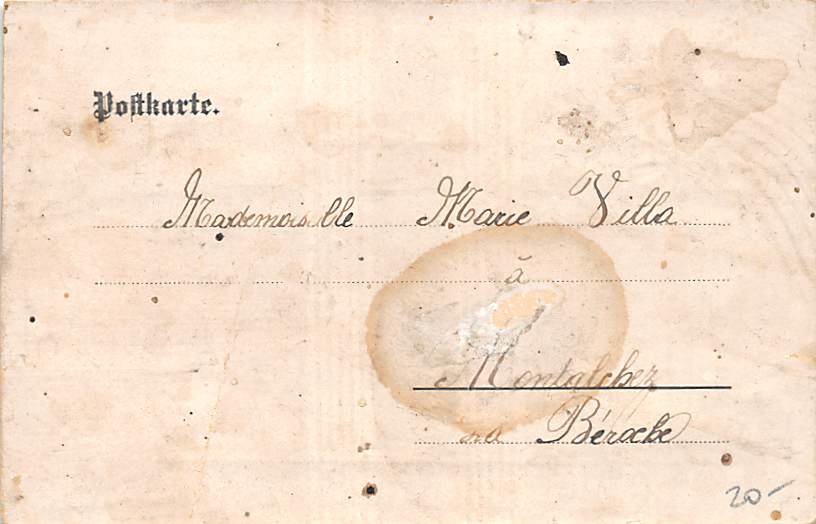 Postkarte.
Mademoiselle Marie Villa
à
Montalchez
Béroche
20-